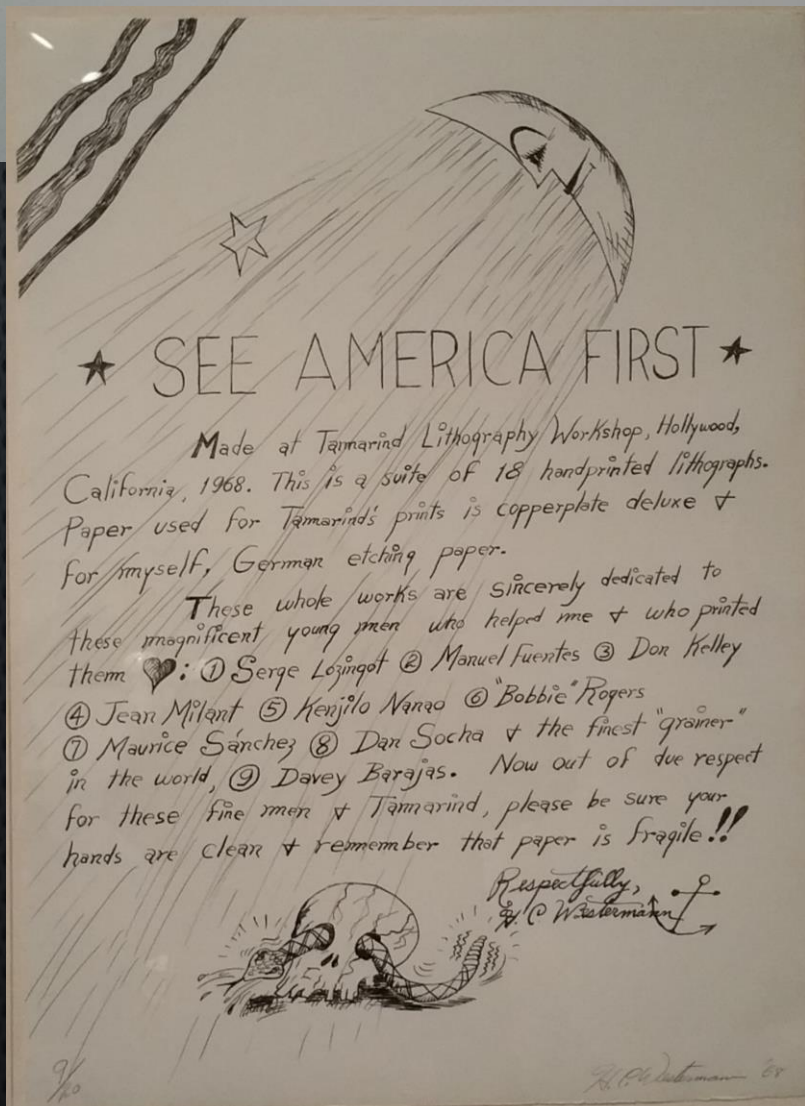 SEE AMERICA FIRST
Made at Tamarind Lithography Workshop, Hollywood,
California, 1968. This is a suite of 18 handprinted lithographs.
Paper used for Tamarind's prints is copperplate deluxe &
for myself, German etching paper.
These whole works are sincerely dedicated to
these magnificent young men who helped me & who printed
them ♥: ① Serge Lozingot ② Manuel Fuentes ③ Don Kelley
④ Jean Milant ⑤ Kenjilo Nanao ⑥ "Bobbie" Rogers
⑦ Maurice Sánchez ⑧ Dan Socha & the finest "grainer"
in the world, ⑨ Davey Barajas. Now out of due respect
for these fine men & Tamarind, please be sure your
hands are clean & remember that paper is fragile!!
Respectfully,
H. C Westermann
9/20
H. C. Westermann '68